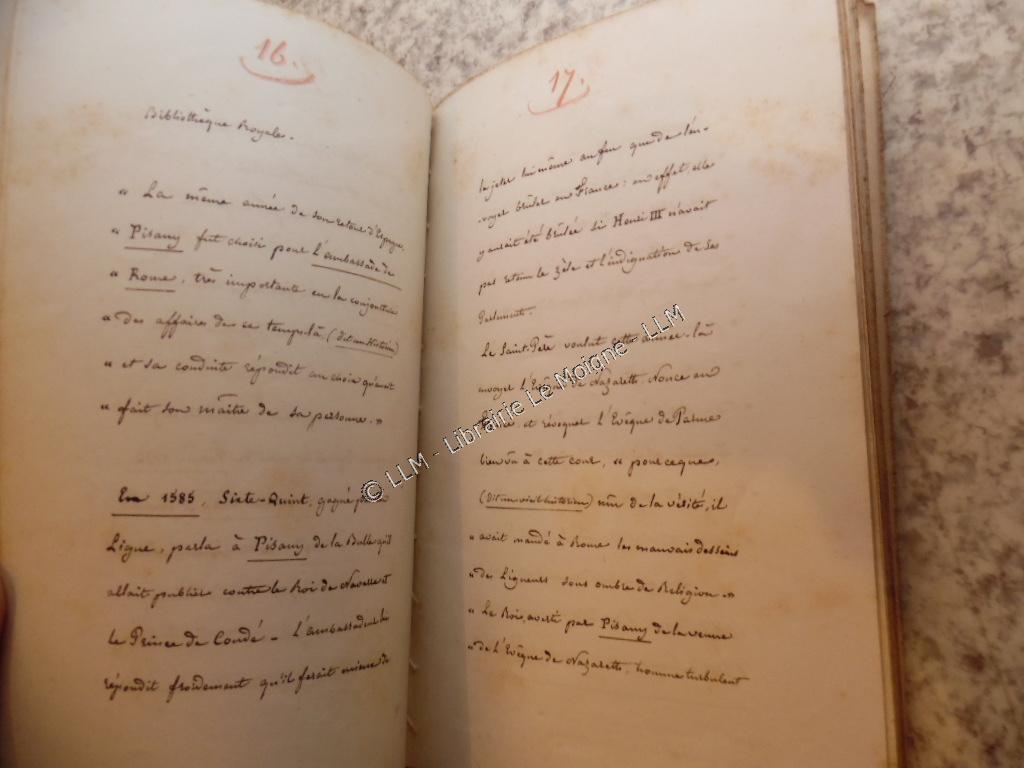 16.
Bibliothèque Royale.
« La même année de son retour d'Espagne,
« Pisany fut choisi pour l'ambassade de
« Rome, très importante en la conjoncture
« des affaires de ce temps là, (dit un Historien)
« et sa conduite répondit au choix qu'avait
« fait son maître de sa personne. »
En 1585, Sixte-Quint, gagné par la
Ligue, parla à Pisany de la Bulle qu'il
allait publier contre le Roi de Navarre et
le Prince de Condé - L'ambassadeur lui
répondit froidement qu'il ferait mieux de
17.
la jeter lui même au feu que de l'en-
-voyer brûler en France : en effet, elle
y aurait été brûlée si Henri III n'avait
pas retenu le zèle et l'indignation de son
Parlement.
Le Saint-Père voulut cette année-là
envoyer l'Evêque de Nazareth, Nonce en
et révoquer l'Evêque de Parme
bien vu à cette cour, « pour ce que,
(dit un vieil historien) mû de la vérité, il
« avait mandé à Rome les mauvais desseins
« des Ligueurs sous ombre de Religion. »
« Le Roi, averti par Pisany de la venue
« de l'Evêque de Nazareth, homme turbulent
© LLM - Librairie Le Moigne - LLM